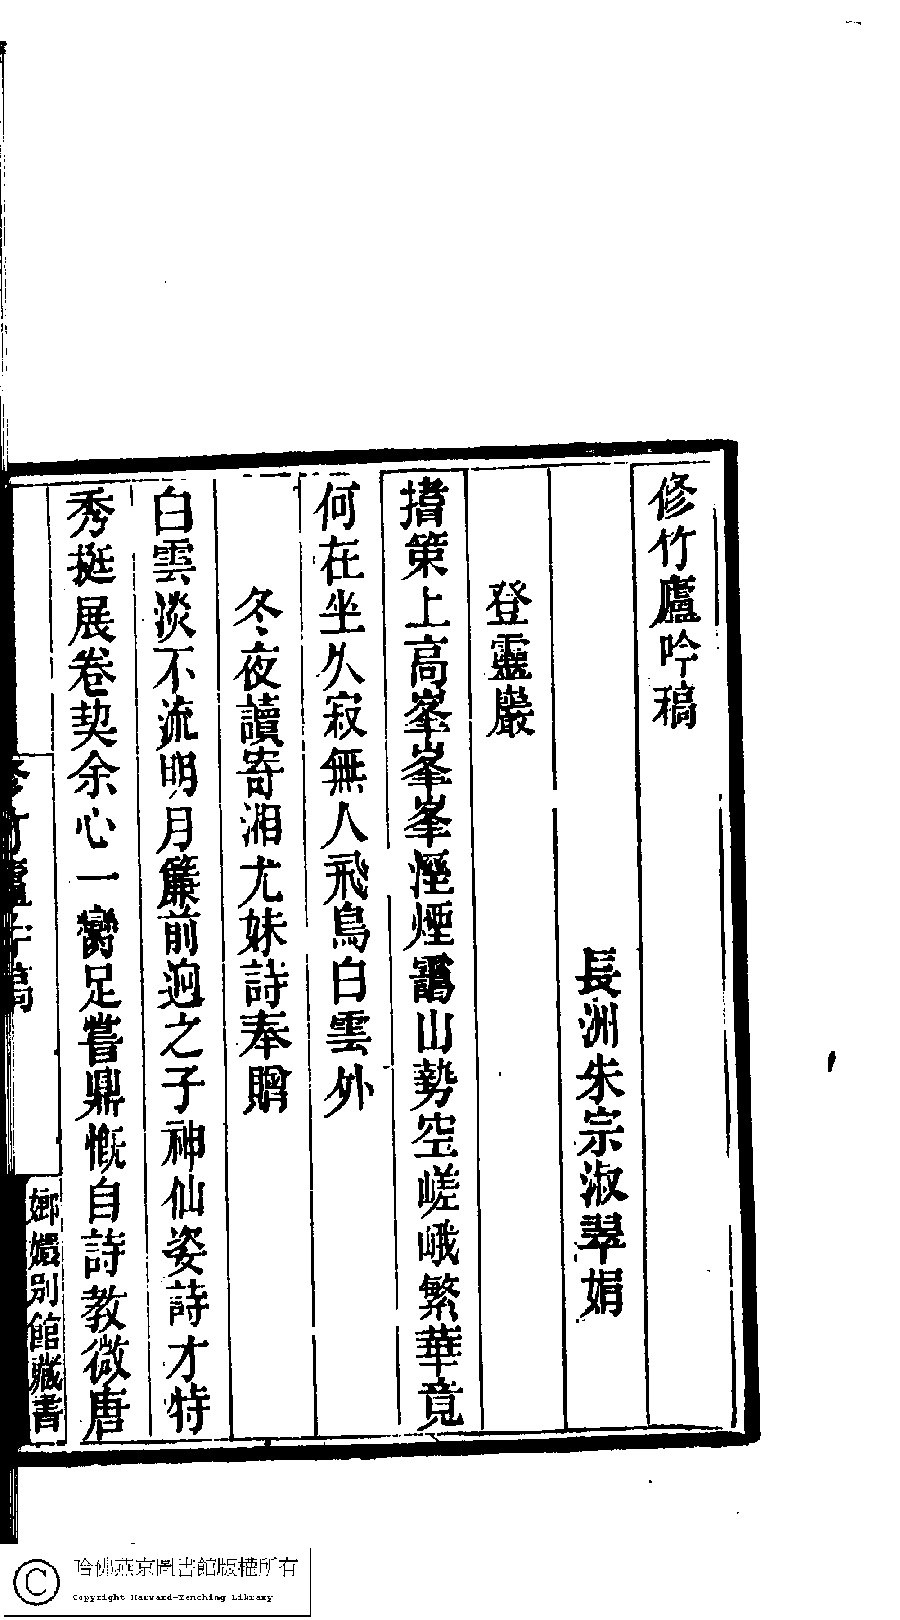 修竹廬吟稿
長洲朱宗淑翠娟
登靈巖
搘策上高峯峯峯溼煙靄山勢空嵯峨繁華竟
何在坐久寂無人飛鳥白雲外
冬夜讀寄湘尤妹詩奉贈
白雲淡不流明月簾前逈之子神仙姿詩才特
秀挺展卷契余心一臠足嘗鼎慨自詩教微唐
修竹廬吟稿
嫏嬛別館藏書
哈佛燕京圖書館版權所有
Copyright Harvard-Yenching Library